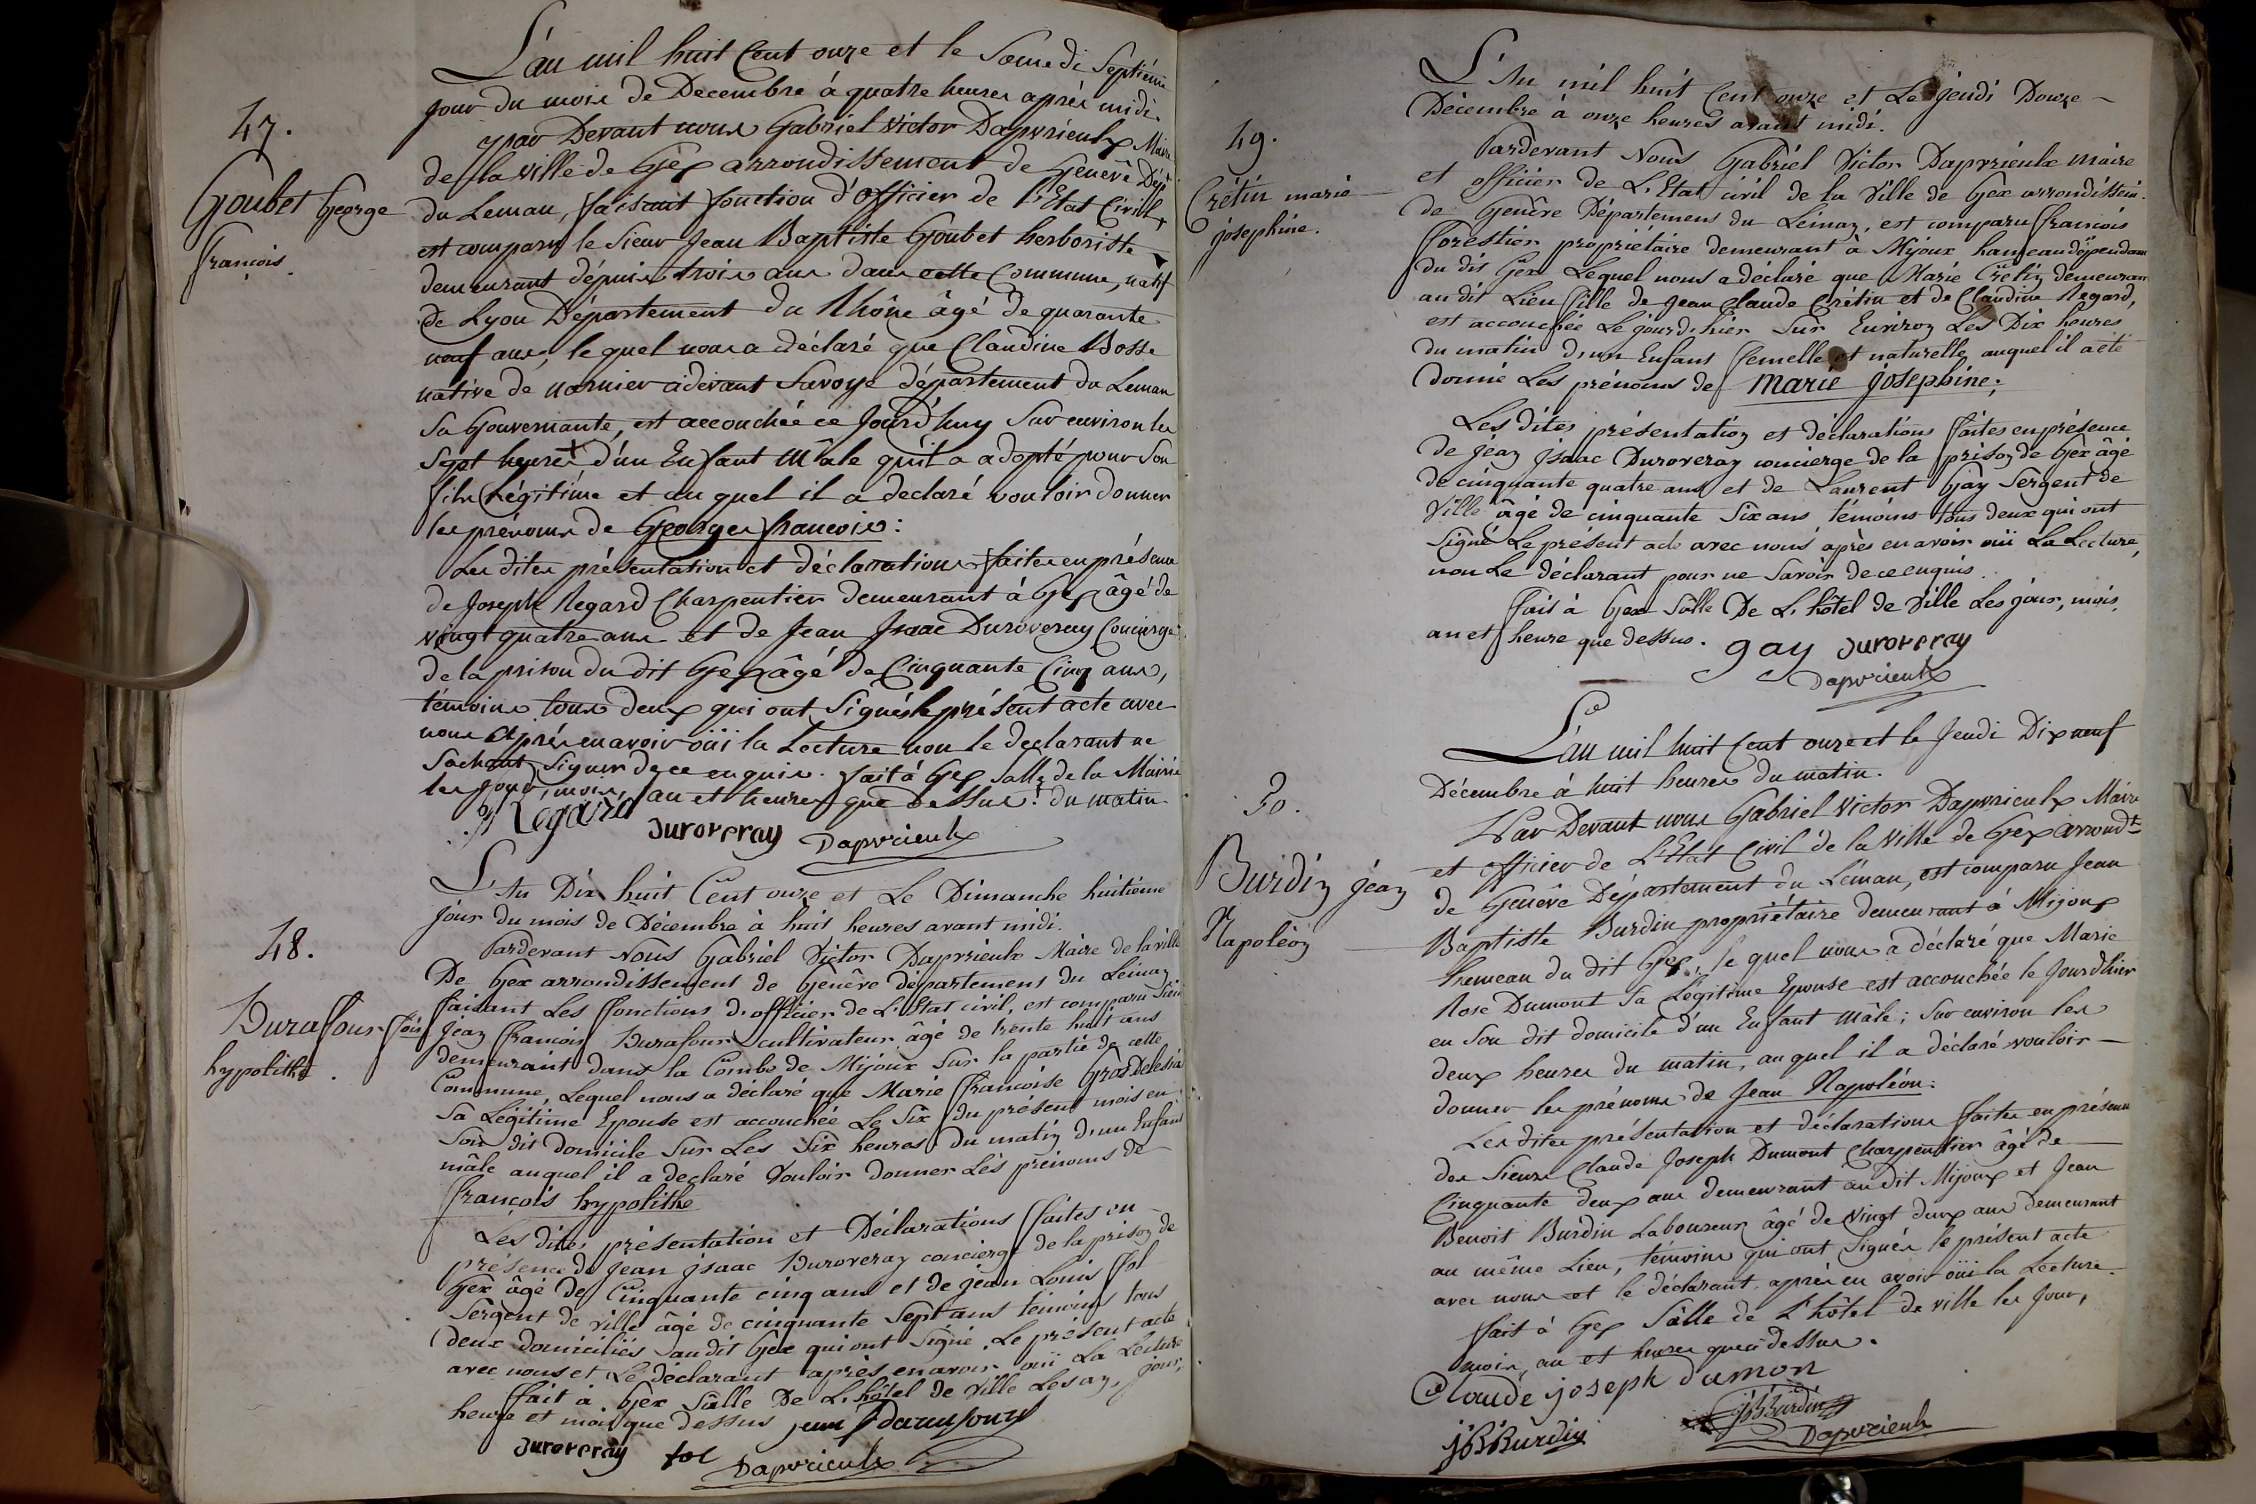 L'an mil huit Cent onze et le Samedi Septième
jour du mois de Decembre à quatre heures après midi.
par Devant nous Gabriel Victor Dapvrieulx Maire
de la ville de Gex arrondissement de Genêve Dépt
du Leman, faisant fonction d'officier de l'Etat Civil
est comparu le Sieur Jean Baptiste Goubet herboriste
demeurant dépuis trois ans dans cette Commune, natif
de Lyon Département du Rhône âgé de quarante
neuf ans, lequel nous a déclaré que Claudine Bosse
native de cidevant Savoye département du Leman
Sa Gouvernante, est accouchée ce Jourd'huy Sur environ les
Sept heures + d'un Enfant Mâle qu'il a adopté pour Son
fils Légitime et au quel il a declaré vouloir donner
les prénoms de Georges françois :
Les dites présentation et déclarations faites en présence
de Joseph Regard Charpentier demeurant à Gex âgé de
vingt quatre ans et de Jean Isaac Duroveray Concierge
de la prison du dit Gex âgé de Cinquante Cinq ans,
témoins tous deux qui ont Signés le présent acte avec
nous après en avoir oüi la Lecture non le declarant ne
Sachant Signer de ce enquis. fait à Gex Salle de la Mairie
les jour, mois, an et heures que Dessus. + du matin.
Regard Duroveray Dapvrieulx
47.
Goubet George
françois.
L'An Dix huit Cent onze et Le Dimanche huitième
jour du mois de Décembre à huit heures avant midi.
Pardevant Nous Gabriel Victor Dapvrieulx Maire de la ville
De Gex arrondissement de Genêve département du Léman
faisant Les fonctions d'officier de L'Etat civil, est comparu Sieur
Jean françois Durafour cultivateur âgé de trente huit ans
demeurant dans la Combe de Mijoux Sur la partie de cette
Commune, Lequel nous a déclaré que Marie françoise Grosdelesia
Sa Légitime Epouse est accouchée Le Six du présent mois en
Son dit domicile Sur Les Six heures du matin d'un Enfant
mâle auquel il a declaré Vouloir donner Les prénoms de
françois hypolithe
Les dites présentation et Déclarations faites en
présence de Jean jsaac Duroveray concierge de la prison de
Gex âgé de Cinquante cinq ans et de jean Louis fol
Sergent de ville âgé de cinquante Sept ans témoins tous
deux domiciliés audit Gex qui ont Signé Le présent acte
avec nous et Le déclarant après en avoir ouï La Lecture
fait à Gex Salle De L'hôtel de Ville Les an, jour,
heure et mois que dessus
Duroveray fol Dapvrieulx
48.
Durafour fois
hypolithe.
L'An mil huit Cent onze et Le jeudi Douze
Décembre à onze heures avant midi.
Pardevant Nous Gabriel Victor Dapvrieulx maire
et officier de L'Etat civil de la Ville de Gex arrondissem.
de Genêve Département du Léman, est comparu françois
forestier propriétaire demeurant à Mijoux hameau dépendant
du dit Gex Lequel nous a déclaré que Marie Crétin demeurant
audit Lieu fille de Jean Claude Crétin et de Claudine Regard,
est accouchée Le jourd'hier Sur Environ Les Dix heures
du matin d'un Enfant femelle et naturelle auquel il a été
donné Les prénoms de Marie Josephine;
Les dites présentation et déclarations faites en présence
de jean jsaac Duroveray concierge de la prison de Gex âgé
de cinquante quatre ans et de Laurent Gay Sergent de
Ville âgé de cinquante Six ans témoins tous deux qui ont
Signé Le présent acte avec nous après en avoir oüi La Lecture,
non Le déclarant pour ne Savoir de ce enquis.
fait à Gex Salle De L'hôtel de Ville Les jour, mois,
an et heure que dessus. gay Duroveray
Dapvrieulx
49.
Crétin marie
josephine.
L'an mil huit Cent onze et le Jeudi Dix neuf
Décembre à huit heures du matin.
Par Devant nous Gabriel Victor Dapvrieulx Maire
et officier de L'Etat Civil de la Ville de Gex arrondt
de Genêve Département du Léman, est comparu Jean
Baptiste Burdin propriétaire demeurant à Mijoux
hameau du dit Gex, le quel nous a déclaré que Marie
Rose Dumont Sa Légitime Epouse est accouchée le Jourd'hier
en Son dit domicile d'un Enfant mâle; Sur environ les
deux heures du matin, au quel il a déclaré vouloir
donner les prénoms de Jean Napoléon.
Les dites présentation et déclarations faites en présence
des Sieurs Claude Joseph Dumont Charpentier âgé de
Cinquante deux ans demeurant au dit Mijoux et Jean
Benoit Burdin Laboureur âgé de Vingt deux ans demeurant
au même Lieu, témoins qui ont Signés le présent acte
avec nous et le déclarant après en avoir oüi la Lecture.
fait à Gex Salle de L'hôtel de ville les Jour,
mois, an et heures que dessus.
Claude joseph dumon
jBBurdin jBBurdin
Dapvrieulx
50.
Burdin jean
Napoléon